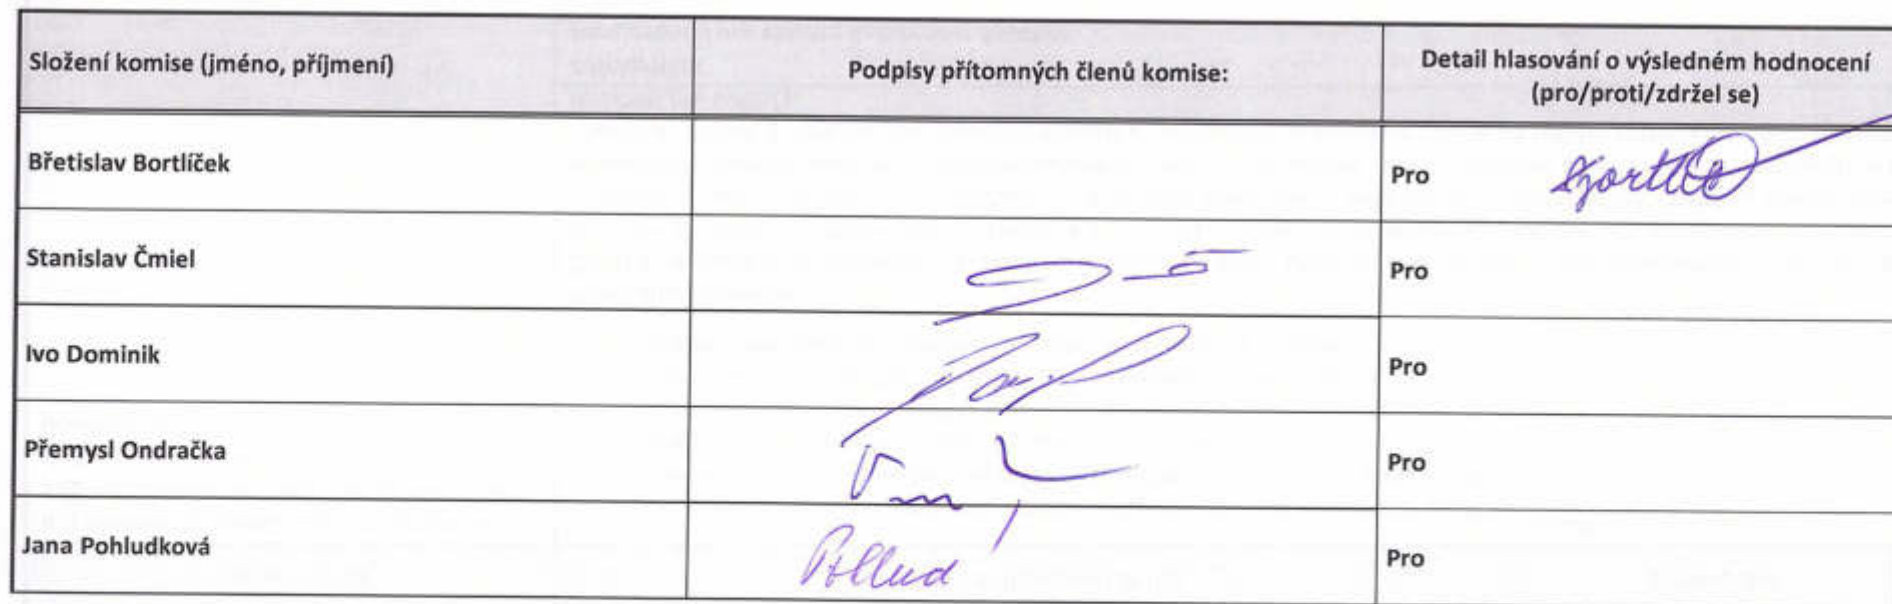 Složení komise (jméno, příjmení)
Podpisy přítomných členů komise:
Detail hlasování o výsledném hodnocení
(pro/proti/zdržel se)
Břetislav Bortlíček
Pro
Stanislav Čmiel
Pro
Ivo Dominik
Pro
Přemysl Ondračka
Pro
Jana Pohludková
Pro